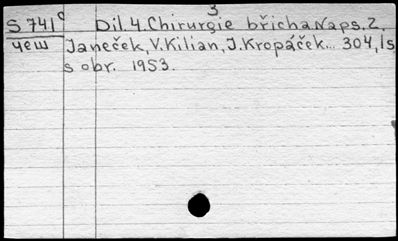 3
S 741c Díl 4. Chirurgie břicha. Naps. Z.
чеш Janeček, V. Kilian, J. Kropáček... 304, 1s
s obr. 1953.